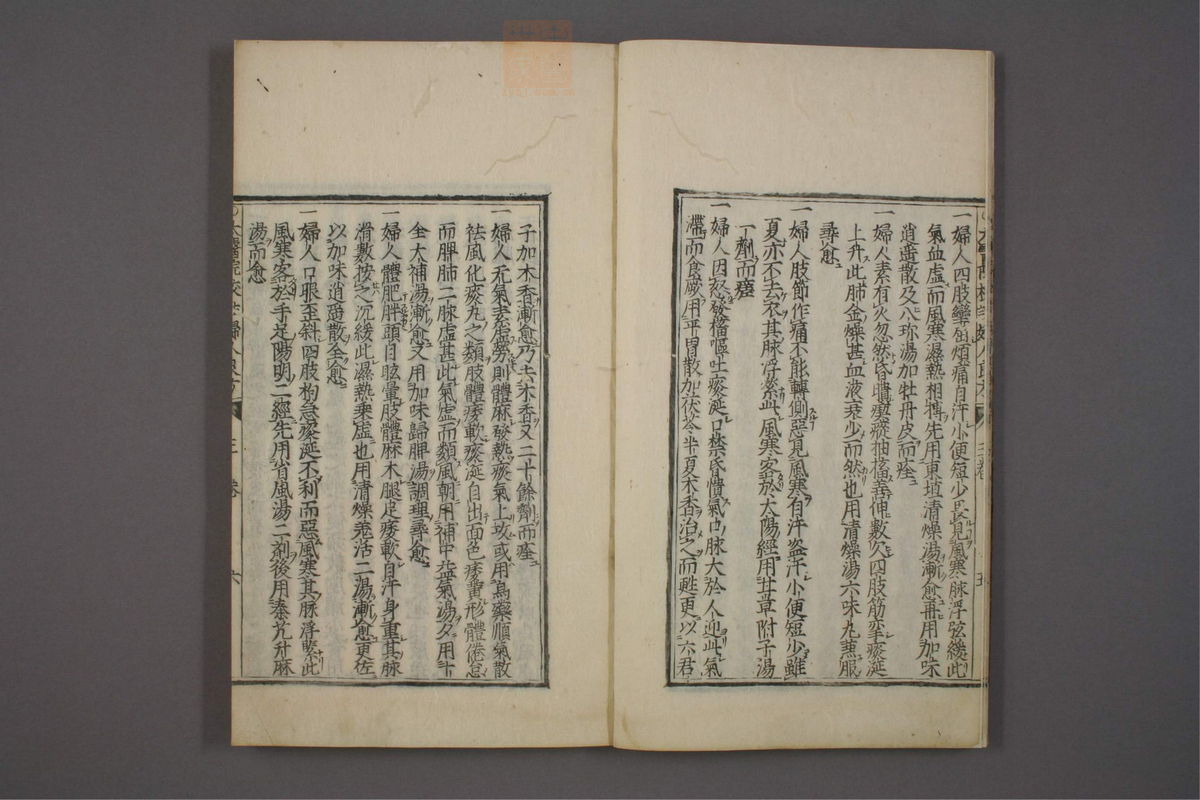 一婦人四肢攣屈煩痛自汗小便短少畏見風寒脉浮弦緩此
氣血虛而風寒濕熱相搏先用東垣清燥湯漸愈再用加味
逍遙散及八珍湯加牡丹皮而痊
一婦人素有火忽然昏憒瘈瘲抽搐善伸數欠四肢筋攣痰涎
上升此肺金燥甚血液衰少而然也用清燥湯六味丸兼服
尋愈
一婦人肢節作痛不能轉側惡見風寒自汗盜汗小便短少雖
夏亦不去衣其脉浮緊此風寒客於太陽經用甘草附子湯
一劑而瘥
一婦人因怒發搐嘔吐痰涎口噤昏憒氣口脉大於人迎此氣
滯而食厥用平胃散加茯苓半夏木香治之而甦更以六君
子加木香漸愈乃去木香又二十餘劑而痊
一婦人元氣素虛勞則體麻發熱痰氣上攻或用烏藥順氣散
祛風化痰丸之類肢體痿軟痰涎自出面色痿黃形體倦怠
而脾肺二脉虛甚此氣虛而類風朝用補中益氣湯夕用十
全大補湯漸愈又用加味歸脾湯調理尋愈
一婦人體肥胖頭目眩暈肢體麻木腿足痿軟自汗身重其脉
滑數按之沉緩此濕熱乗虛也用清燥羌活二湯漸愈更佐
以加味逍遙散全愈
一婦人口眼歪斜四肢拘急痰涎不利而惡風寒其脉浮緊此
風寒客於手足陽明二經先用省風湯二剤後用秦艽升麻
湯而愈
三卷
六